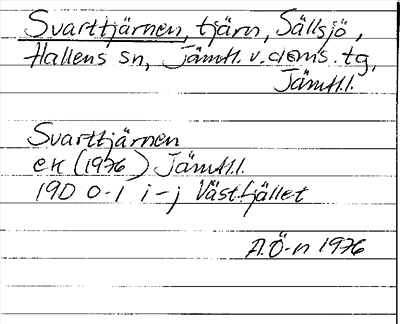 Svarttjärnen, tjärn, Sällsjö,
Hallens sn, Jämtl. v. doms. tg,
Jämtl.l.
Svarttjärnen
ek (1976) Jämtl.l.
19D 0-1 i-j Västfjället
A.Ö-n 1976